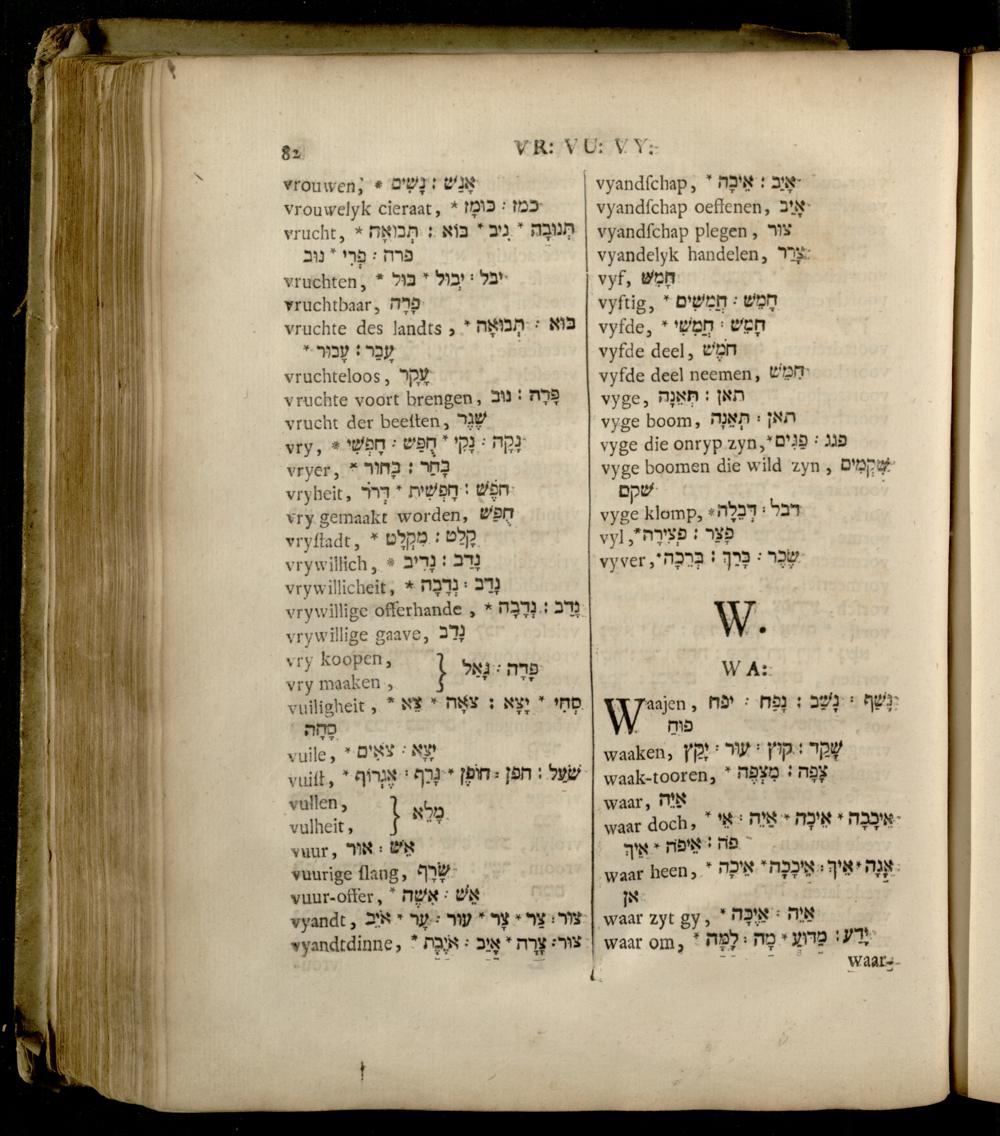 82
VR: VU: VY:
vrouwen, * אָנַשׁ : נָשִׁים
vrouwelyk cieraat, * כמז : כּוּמָז
vrucht, * תְּנוּבָה * נִיב * בּוֹא : תְּבוּאָה
פרה : פְּרִי * נוּב
vruchten, * יבל : יְבוּל * בּוּל
vruchtbaar, פָּרָה
vruchte des landts, * בּוֹא : תְּבוּאָה
* עָבַר : עָבוּר
vruchteloos, עָקָר
vruchte voort brengen, פָּרָה : נוּב
vrucht der beeſten, שֶׁגֶר
vry, * נָקָה : נָקִי * חֻפַּשׁ : חָפְשִׁי
vryer, * בָּחַר : בָּחוּר
vryheit, חֹפֶשׁ : חָפְשִׁית * דְּרֹר
vry gemaakt worden, חֻפַּשׁ
vryſtadt, * קָלַט : מִקְלָט
vrywillich, * נָדַב : נָדִיב
vrywillicheit, * נָדַב : נְדָבָה
vrywillige offerhande, * נָדַב : נְדָבָה
vrywillige gaave, נָדַב
vry koopen, } פָּדָה : גָּאַל
vry maaken,
vuiligheit, * סְחִי * יָצָא : צֹאָה * צֵא
סָחָה
vuile, * יָצָא : צֹאִים
vuiſt, * שֹׁעַל : חפן : חוֹפֶן * גָּרַף : אֶגְרוֹף
vullen, } מָלֵא
vulheit,
vuur, אֵשׁ : אוּר
vuurige ſlang, שָׂרָף
vuur-offer, * אֵשׁ : אִשֶּׁה
vyandt, צור : צַר * צָר * עור : עָר * אֹיֵב
vyandtdinne, * צור : צָרָה * אָיַב : אֹיֶבֶת
vyandſchap, * אָיַב : אֵיבָה
vyandſchap oeffenen, אָיַב
vyandſchap plegen, צור
vyandelyk handelen, צָרַר
vyf, חָמֵשׁ
vyftig, * חָמֵשׁ : חֲמִשִּׁים
vyfde, * חָמֵשׁ : חֲמִשִּׁי
vyfde deel, חֹמֶשׁ
vyfde deel neemen, חִמֵּשׁ
vyge, תאן : תְּאֵנָה
vyge boom, תאן : תְּאֵנָה
vyge die onryp zyn, * פגג : פַּגִּים
vyge boomen die wild zyn, שִׁקְמִים
שקם
vyge klomp, * דבל : דְּבֵלָה
vyl, * פָּצַר : פְּצִירָה
vyver, * שֶׂכֶר : בָּרַךְ : בְּרֵכָה
W.
WA:
Waajen, נָשַׁף : נָשַׁב : נָפַח : יפח
פוּחַ
waaken, שָׁקַד : קוּץ : עוּר : יָקַץ
waak-tooren, * צָפָה : מִצְפֶּה
waar, אַיֵּה
waar doch, * אֵי : אַיֵּה * אֵיכָה * אֵיכָכָה
פֹּה : אֵיפֹה * אֵיךְ
waar heen, * אָנָה * אֵיךְ : אֵיכָכָה * אֵיכָה
אן
waar zyt gy, * אַיֵּה : אַיֶּכָּה
waar om, * יָדַע : מַדּוּעַ * מָה : לָמָּה
waar-